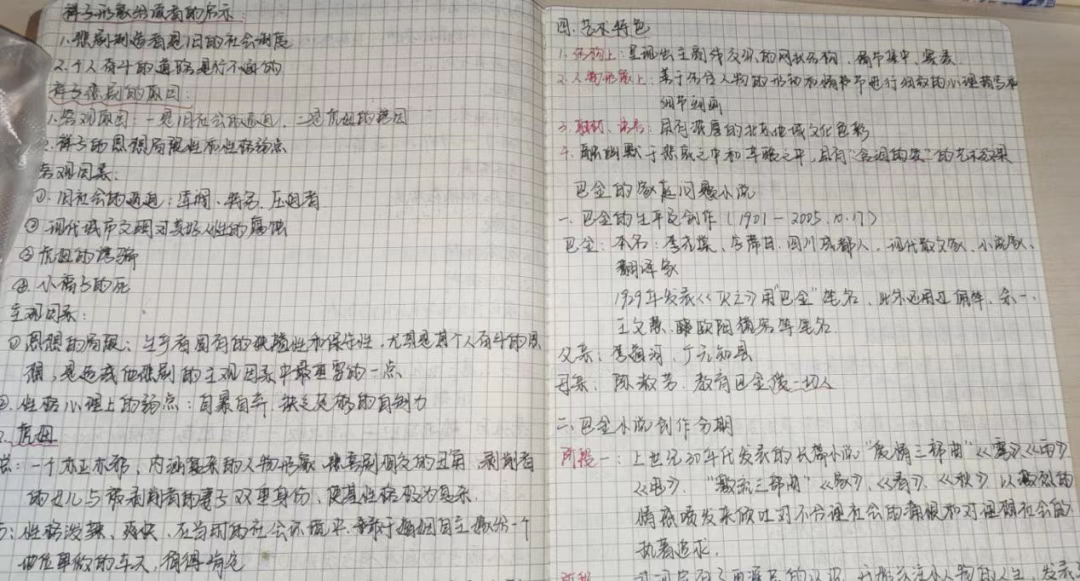 祥子形象给读者的启示:
1.悲剧制造者是旧的社会制度
2.个人奋斗的道路是行不通的
祥子悲剧的原因:
1.客观原因:一是旧社会的逼迫,二是虎妞的诱因
2.祥子的思想局限性和性格弱点
客观因素:
①.旧社会的逼迫:军阀、特务、压迫者
②现代城市文明对美好人性的腐蚀
③虎妞的诱骗
④.小福子的死
主观因素:
①思想的局限:生手有固有的狭隘性和保守性,尤其是其个人奋斗的思
想,是造成他悲剧的主观因素中最重要的一点
②.性格心理上的弱点:自暴自弃、缺乏足够的自制力
2.虎妞
一个亦正亦邪,内涵复杂的人物形象,悲喜剧交的丑角,剥削者
的女儿与被剥削者的妻子双重身份,使其性格极为复杂.
性格泼辣、爽快、在当时的社会环境中,敢于婚姻自主嫁给一个
地位卑微的车夫,值得肯定
四.艺术特色
1.结构上:呈现出主副线交织的网状结构,情节集中、紧凑
2.人物形象上:善于结合人物的形和情节进行细致的心理描写和
细节刻画
3.取材、语言:具有深厚的北京地域文化色彩
4.融幽默于悲哀之中和辛酸之中,具有"含泪的笑"的艺术效果
巴金的家庭问题小说
一.巴金的生平及创作(1901-2005.10.17)
巴金:本名:李尧棠、字芾甘.四川成都人、现代散文家、小说家、
翻译家
1929年发表《灭亡》用"巴金"笔名,此外还用过佩竿、余一、
王文慧、欧阳镜蓉等笔名
父亲:李道河,广元知县
母亲:陈淑芬,教育巴金爱一切人
二.巴金小说创作分期
阶段一:上世纪30年代发表的长篇小说"爱情三部曲"《雾》《雨》
《电》、"激流三部曲"《家》、《春》、《秋》以激烈的
情感喷发来倾吐对不合理社会的满恨和对理想社会的
执着追求.